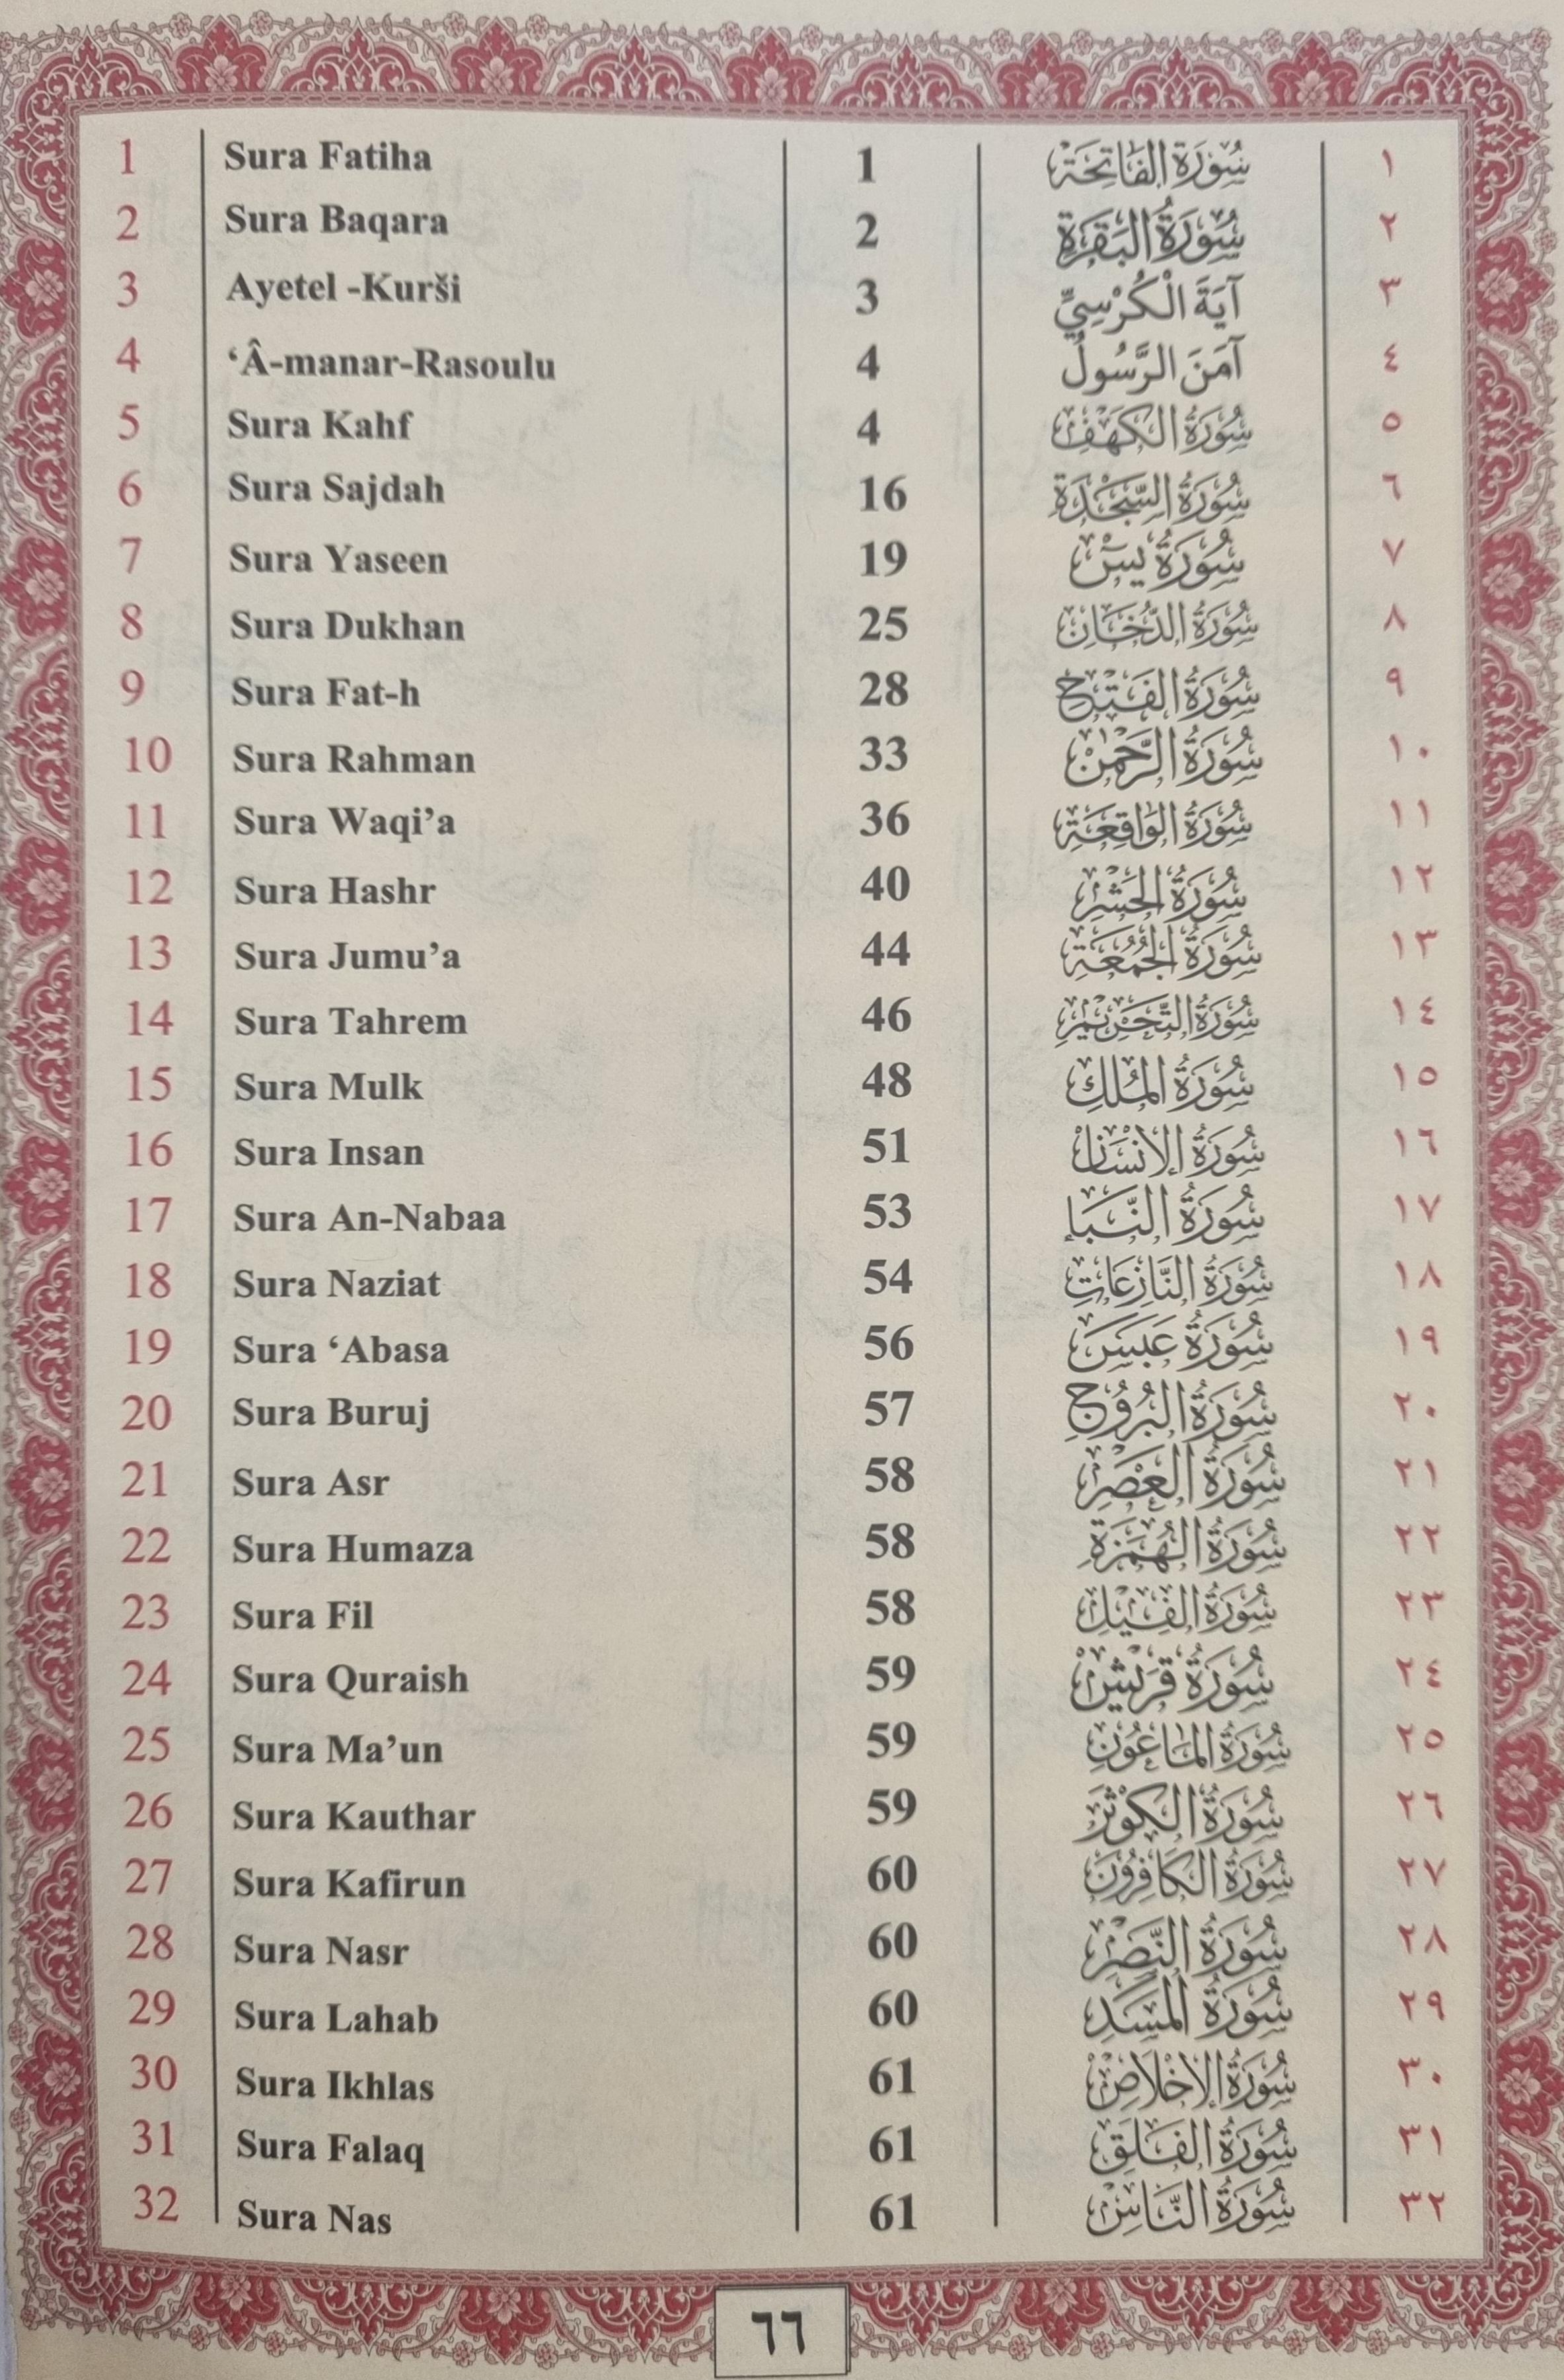 1 Sura Fatiha 1 سُوْرَةُ الفَاتِحَة ١
2 Sura Baqara 2 سُوْرَةُ البَقَرَةِ ٢
3 Ayetel -Kurši 3 آيَةَ الْكُرْسِيِّ ٣
4 ‘Â-manar-Rasoulu 4 آمَنَ الرَّسُولُ ٤
5 Sura Kahf 4 سُوْرَةُ الكَهْفِ ٥
6 Sura Sajdah 16 سُوْرَةُ السَّجْدَةِ ٦
7 Sura Yaseen 19 سُوْرَةُ يسٓ ٧
8 Sura Dukhan 25 سُوْرَةُ الدُّخَانِ ٨
9 Sura Fat-h 28 سُوْرَةُ الفَتْحِ ٩
10 Sura Rahman 33 سُوْرَةُ الرَّحْمٰنِ ١٠
11 Sura Waqi’a 36 سُوْرَةُ الوَاقِعَةِ ١١
12 Sura Hashr 40 سُوْرَةُ الحَشْرِ ١٢
13 Sura Jumu’a 44 سُوْرَةُ الجُمُعَةِ ١٣
14 Sura Tahrem 46 سُوْرَةُ التَّحْرِيْمِ ١٤
15 Sura Mulk 48 سُوْرَةُ المُلْكِ ١٥
16 Sura Insan 51 سُوْرَةُ الإِنْسَانِ ١٦
17 Sura An-Nabaa 53 سُوْرَةُ النَّبَإِ ١٧
18 Sura Naziat 54 سُوْرَةُ النَّازِعَاتِ ١٨
19 Sura ‘Abasa 56 سُوْرَةُ عَبَسَ ١٩
20 Sura Buruj 57 سُوْرَةُ البُرُوْجِ ٢٠
21 Sura Asr 58 سُوْرَةُ العَصْرِ ٢١
22 Sura Humaza 58 سُوْرَةُ الهُمَزَةِ ٢٢
23 Sura Fil 58 سُوْرَةُ الفِيْلِ ٢٣
24 Sura Quraish 59 سُوْرَةُ قُرَيْشٍ ٢٤
25 Sura Ma’un 59 سُوْرَةُ المَاعُوْنِ ٢٥
26 Sura Kauthar 59 سُوْرَةُ الكَوْثَرَ ٢٦
27 Sura Kafirun 60 سُوْرَةُ الكَافِرُوْنَ ٢٧
28 Sura Nasr 60 سُوْرَةُ النَّصْرِ ٢٨
29 Sura Lahab 60 سُوْرَةُ المَسَدِ ٢٩
30 Sura Ikhlas 61 سُوْرَةُ الإِخْلَاصِ ٣٠
31 Sura Falaq 61 سُوْرَةُ الفَلَقِ ٣١
32 Sura Nas 61 سُوْرَةُ النَّاسِ ٣٢
٦٦